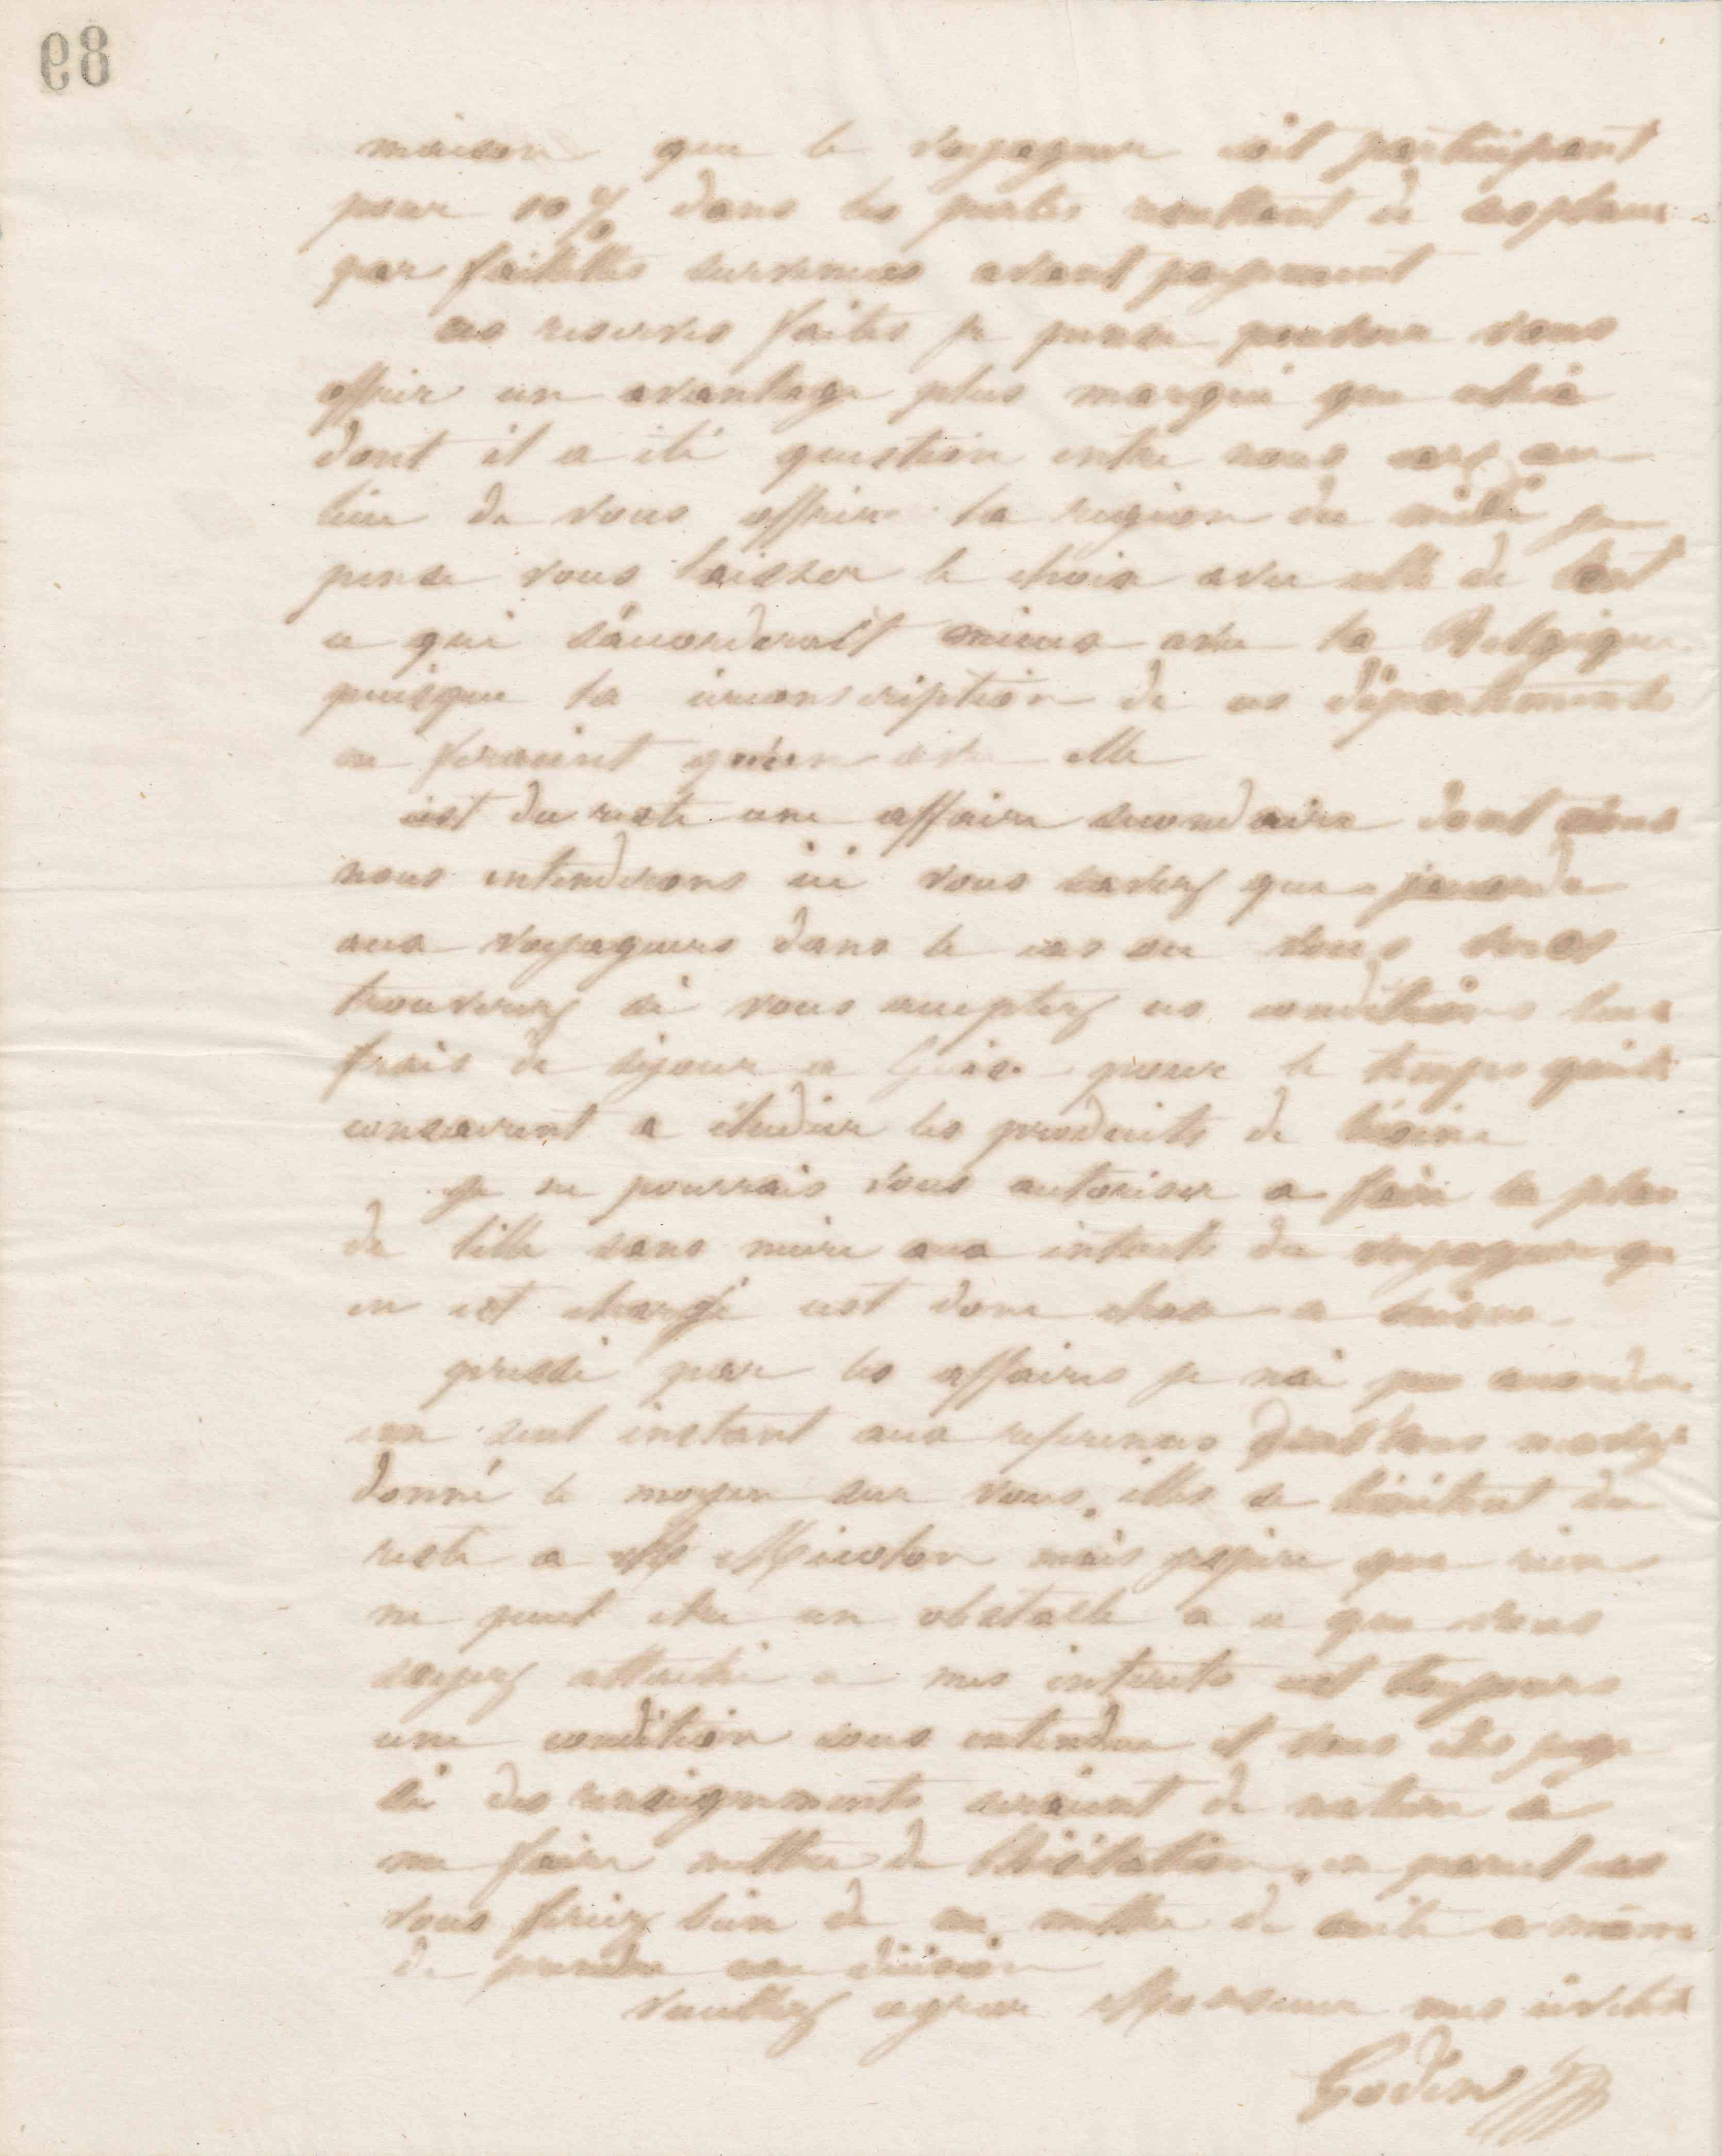 89
maison que le voyageur soit participant
pour 10 % dans les pertes resultant de ses placem
par faillites survenues avant payement
ces reserves faites je pense pouvoir vous
offrir un avantage plus marqué que celui
dont il a été question entre nous car au
lieu de vous offrir la region du midi je
pense vous laisser le choix avec celle de lest
ce qui saccorderait mieux avec la Belgique
puisque la circonscription de ces départements
ne feraient quun avec elle
cest du reste une affaire secondaire dont nous
nous entenderons ici vous savez que jaccorde
aux voyageurs dans le cas ou vous vous
trouverez si vous acceptez ces conditions leurs
frais de sejour a Guise pour le temps quils
consacrent a étudier les produits de lusine
Je ne pourrais vous autoriser a faire la place
de lille sans nuire aux interets du voyageur qui
en est chargé cest donc chose a laisser
pressé par les affaires je nai pu accorder
un seul instant aux references dont vous mavez
donné le moyen sur vous, elles se limitent du
reste a Mr mais jespere que rien
ne peut etre un obstacle a ce que vous
soyez attaché a mes interets cest toujours
une condition sous entendue et vous etes juge
si des renseignements seraient de nature a
me faire mettre de lhésitation, en pareil cas
vous feriez bien de me mettre de suite a même
de prendre une décision
veuillez agreer Monsieur mes civilités
Godin